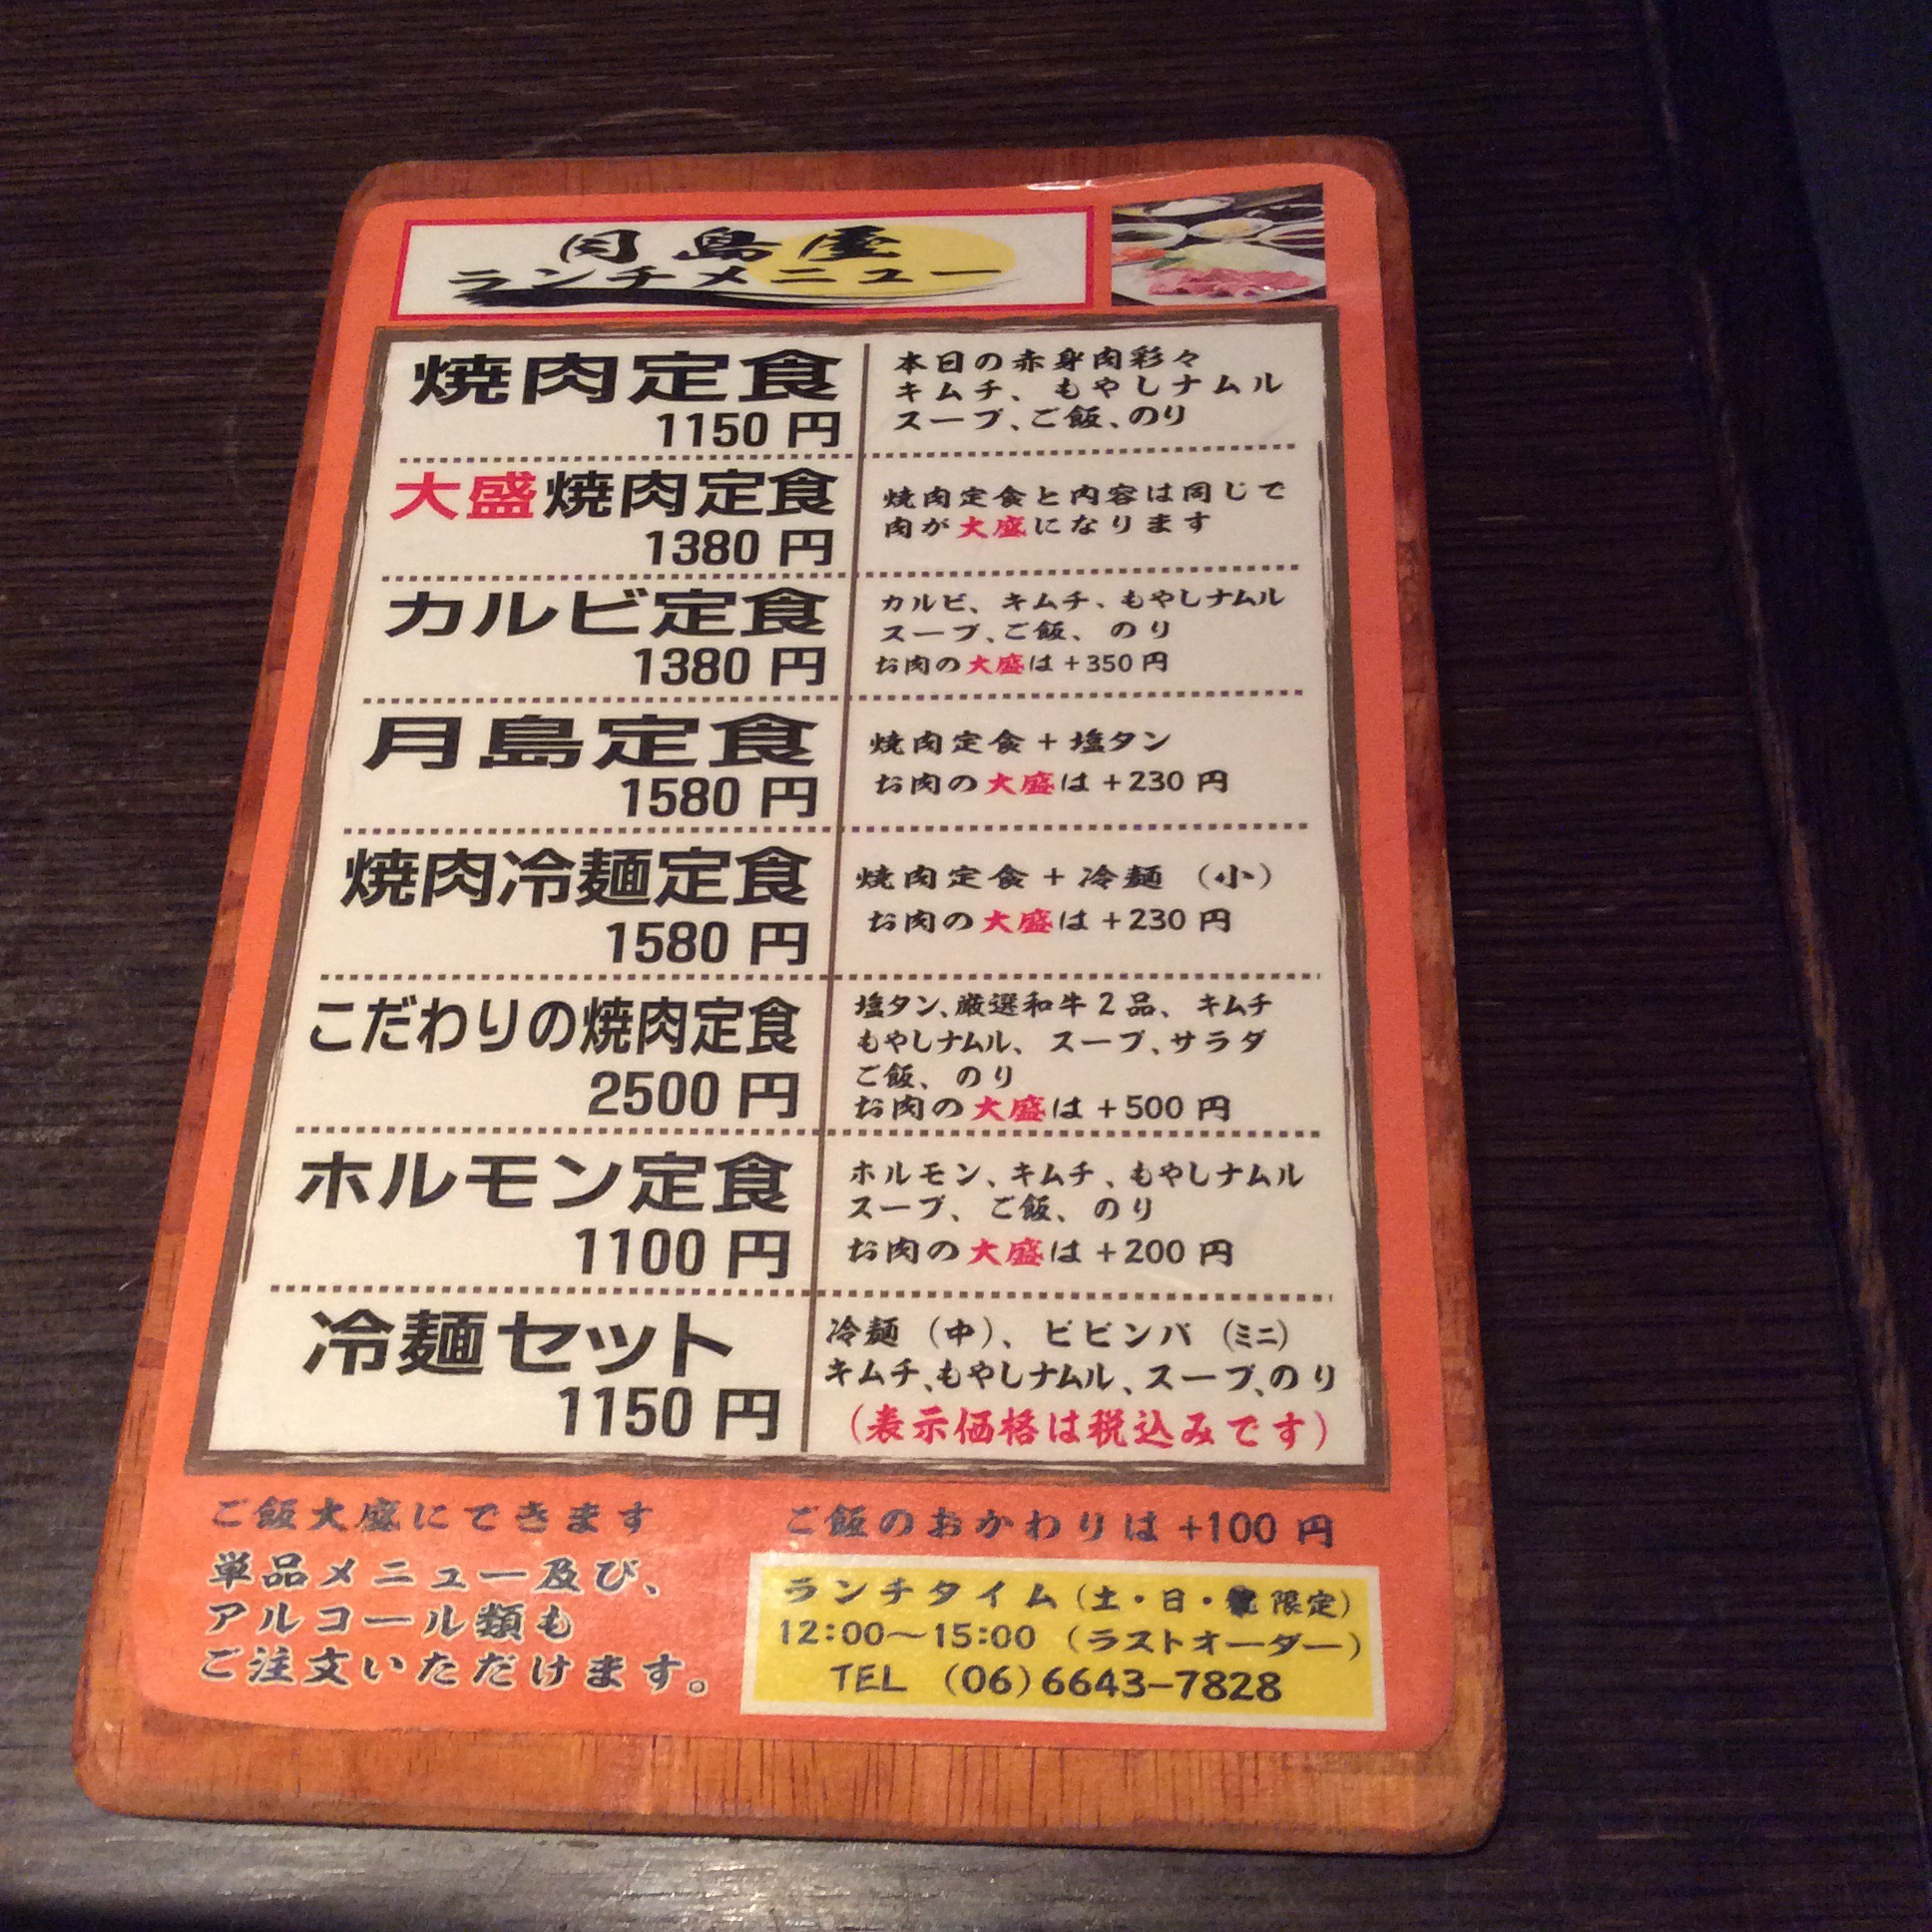 月島屋
ランチメニュー
焼肉定食
1150 円
本日の赤身肉彩々
キムチ、もやしナムル
スープ、ご飯、のり
大盛焼肉定食
1380 円
焼肉定食と内容は同じで
肉が大盛になります
カルビ定食
1380 円
カルビ、キムチ、もやしナムル
スープ、ご飯、のり
お肉の大盛は +350 円
月島定食
1580 円
焼肉定食 + 塩タン
お肉の大盛は +230 円
焼肉冷麺定食
1580 円
焼肉定食 + 冷麺（小）
お肉の大盛は +230 円
こだわりの焼肉定食
2500 円
塩タン、厳選和牛2品、キムチ
もやしナムル、スープ、サラダ
ご飯、のり
お肉の大盛は +500 円
ホルモン定食
1100 円
ホルモン、キムチ、もやしナムル
スープ、ご飯、のり
お肉の大盛は +200 円
冷麺セット
1150 円
冷麺（中）、ビビンバ（ミニ）
キムチ、もやしナムル、スープ、のり
（表示価格は税込みです）
ご飯大盛にできます
ご飯のおかわりは +100 円
単品メニュー及び、
アルコール類も
ご注文いただけます。
ランチタイム（土・日・限定）
12:00～15:00（ラストオーダー）
TEL (06)6643-7828